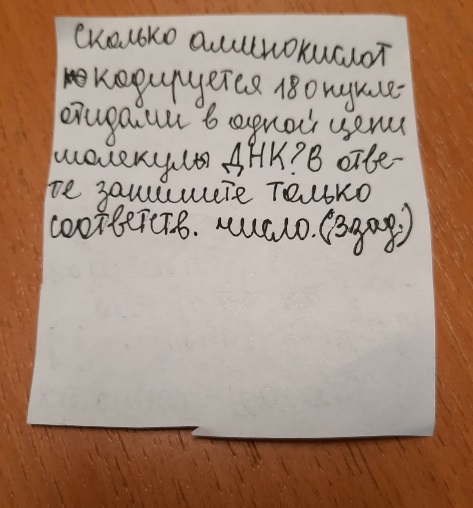 Сколько аминокислот
кодируется 180 нукле-
отидами в одной цепи
молекулы ДНК? В отве-
те запишите только
соответств. число. (3 зад.)